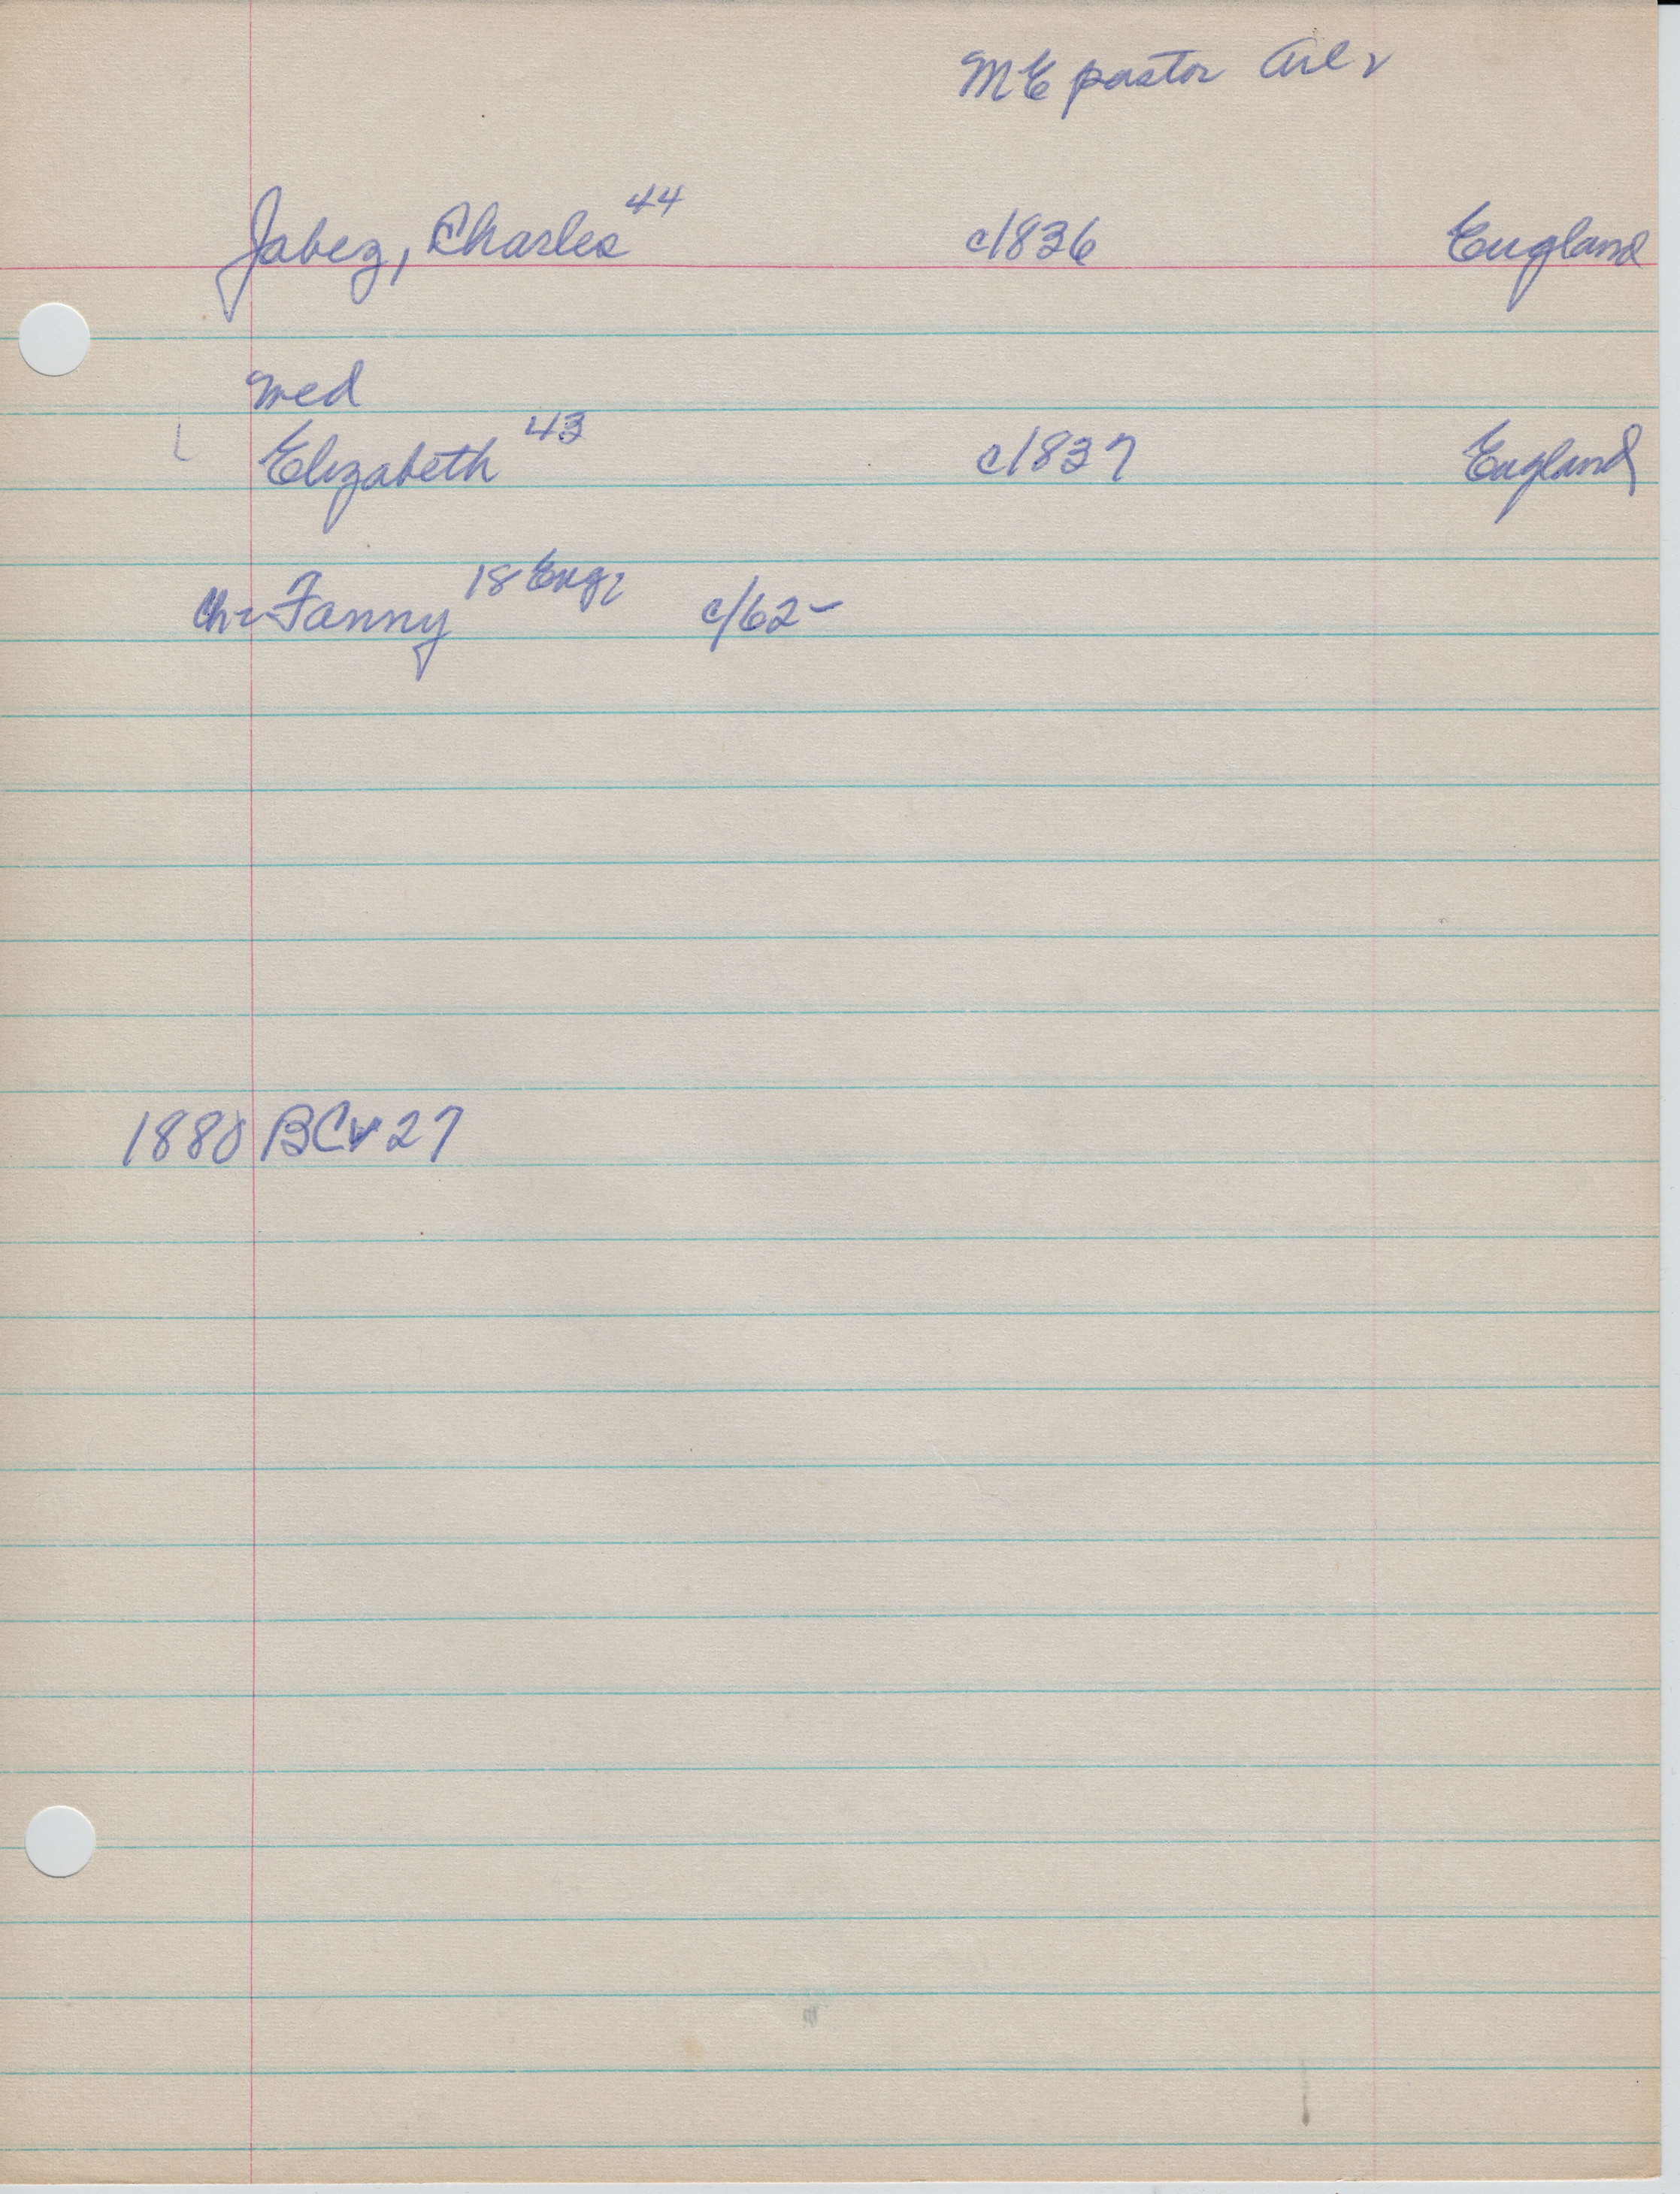 ME pastor Arl
Jabez, Charles 44 c1836 England
med
Elizabeth 43 c1837 England
ch- Fanny 18 Eng c/62-
1880 BCv27